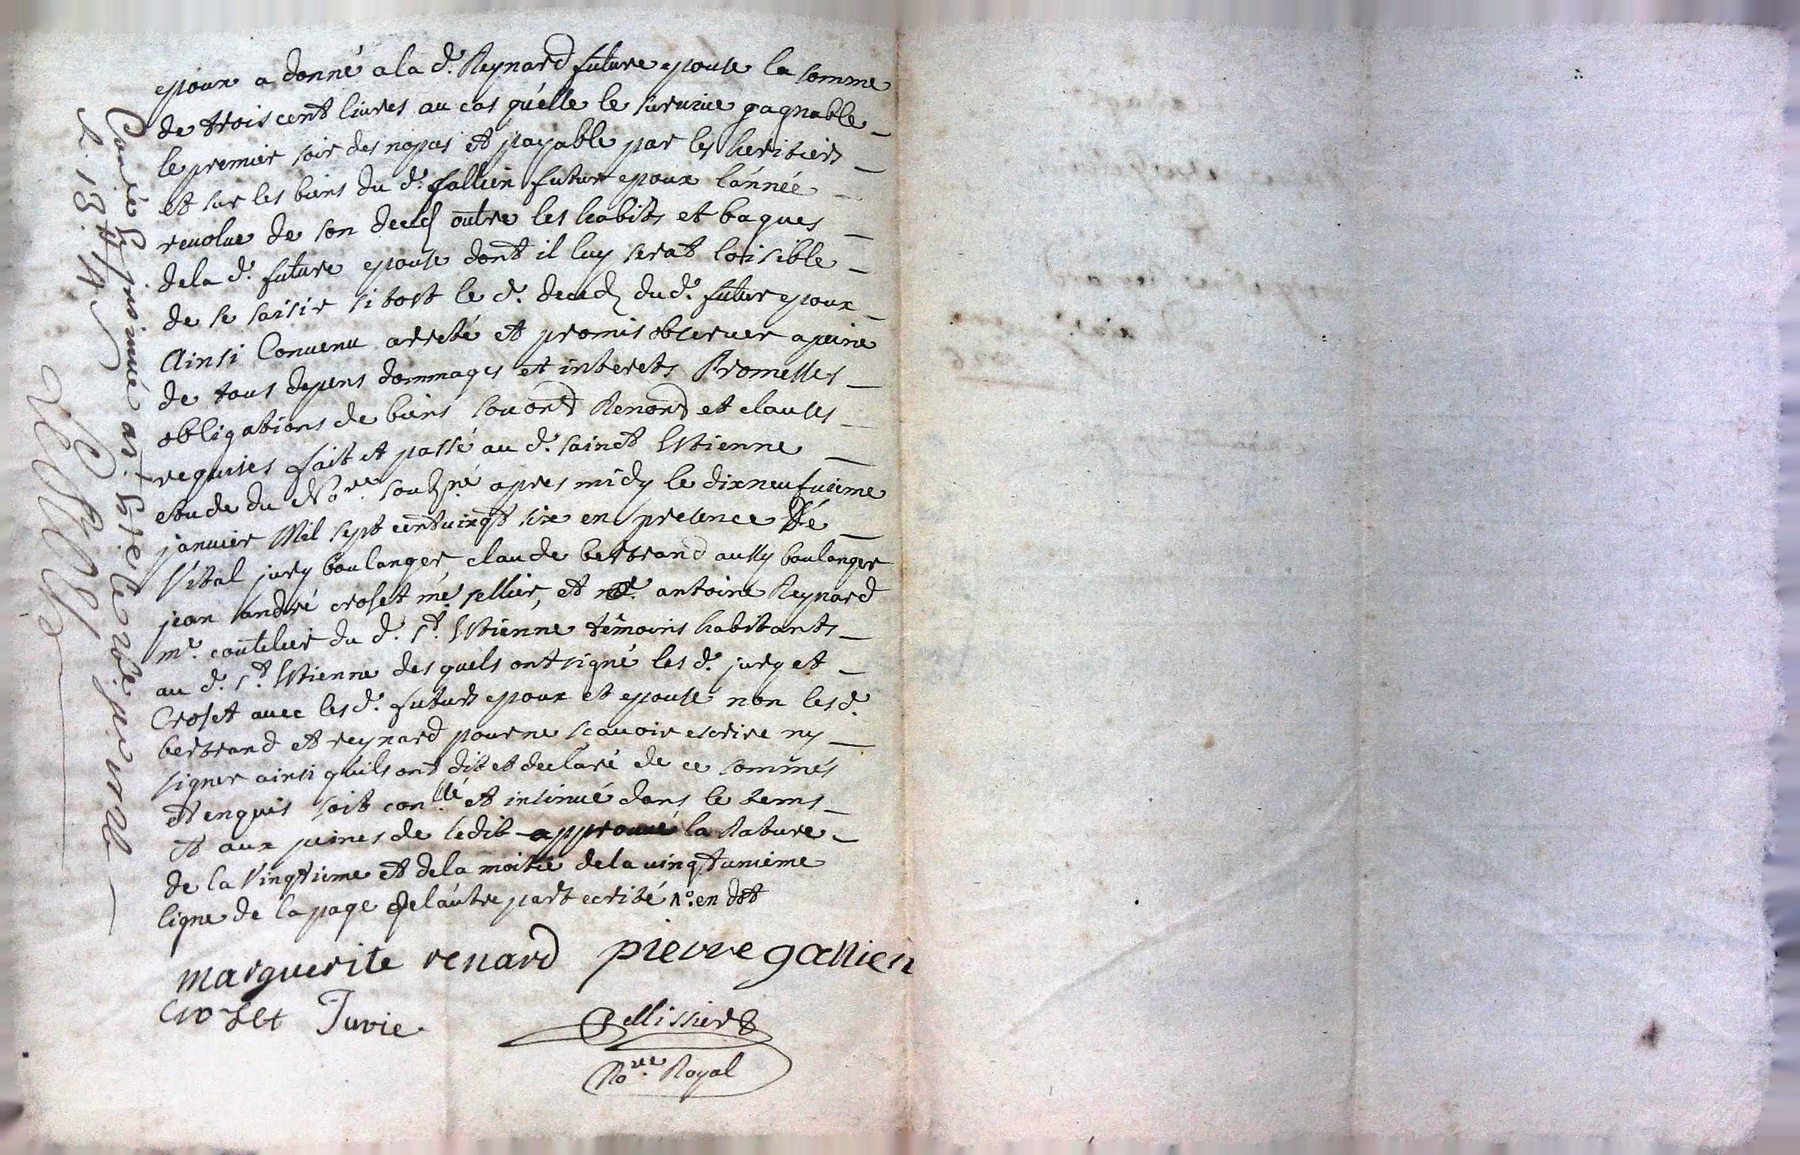 epoux a donné a la d.^e Reynard future epouse la somme
de trois cent livres au cas quélle le survive gagnable
le premier soir des nopces et payable par les heritiers
et sur les biens du d.^t Gallien futur epoux lánnée
revolue de son deced outre les habits et bagues
dela d.^e future epouse dont il luy serat loisible
de se saisir si tost le d.^t deced du d.^t futur epoux
Ainsi Convenu arreté et promis observer a peine
de tous depens dommages et interets Promesses
obligations de biens soumond Renond et clauses
requises fait et passé au d.^t sainct Estienne
etude du No^re souz^né apres midy le dixneufvieme
janvier Mil sept centvingt six en presence de
Vital jury boulanger claude bertrand aussy boulanger
jean andré croset m^e sellier, et antoine Reynard
m^e coutelier du d.^t S^t Estienne témoins habitants
au d.^t S^t Estienne des quels ont signé les d.^t jury et
Croset avec les d.^t futurs epoux et epouse non les d.^t
bertrand et reynard pour ne scavoir escrire ny
signer ainsi quils ont dit et declaré de ce sommés
et enquis soit con^llé et insinué dans le tems
et aux peines de ledit approuvé la Rature
de la vingtieme et dela moitié dela vingtunieme
ligne de la page de láutre part ecrité en dot
marguerite renard pierre gallien
Crozet Jurie
Pellissier
No^re Royal